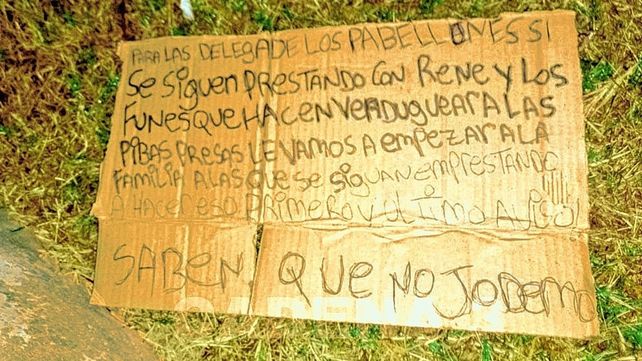 PARA LAS DELEGADE LOS PABELLONES SI
SE SIGUEN PRESTANDO CON RENE Y LOS
FUNES QUE HACEN VERDUGUEAR A LAS
PIBAS PRESAS LE VAMOS A EMPEZAR A LA
FAMILIA A LAS QUE SE SIGUAN EMPRESTANDO
A HACER ESO PRIMERO Y ULTIMO AVISO!
SABEN QUE NO JODEMO
CADENA